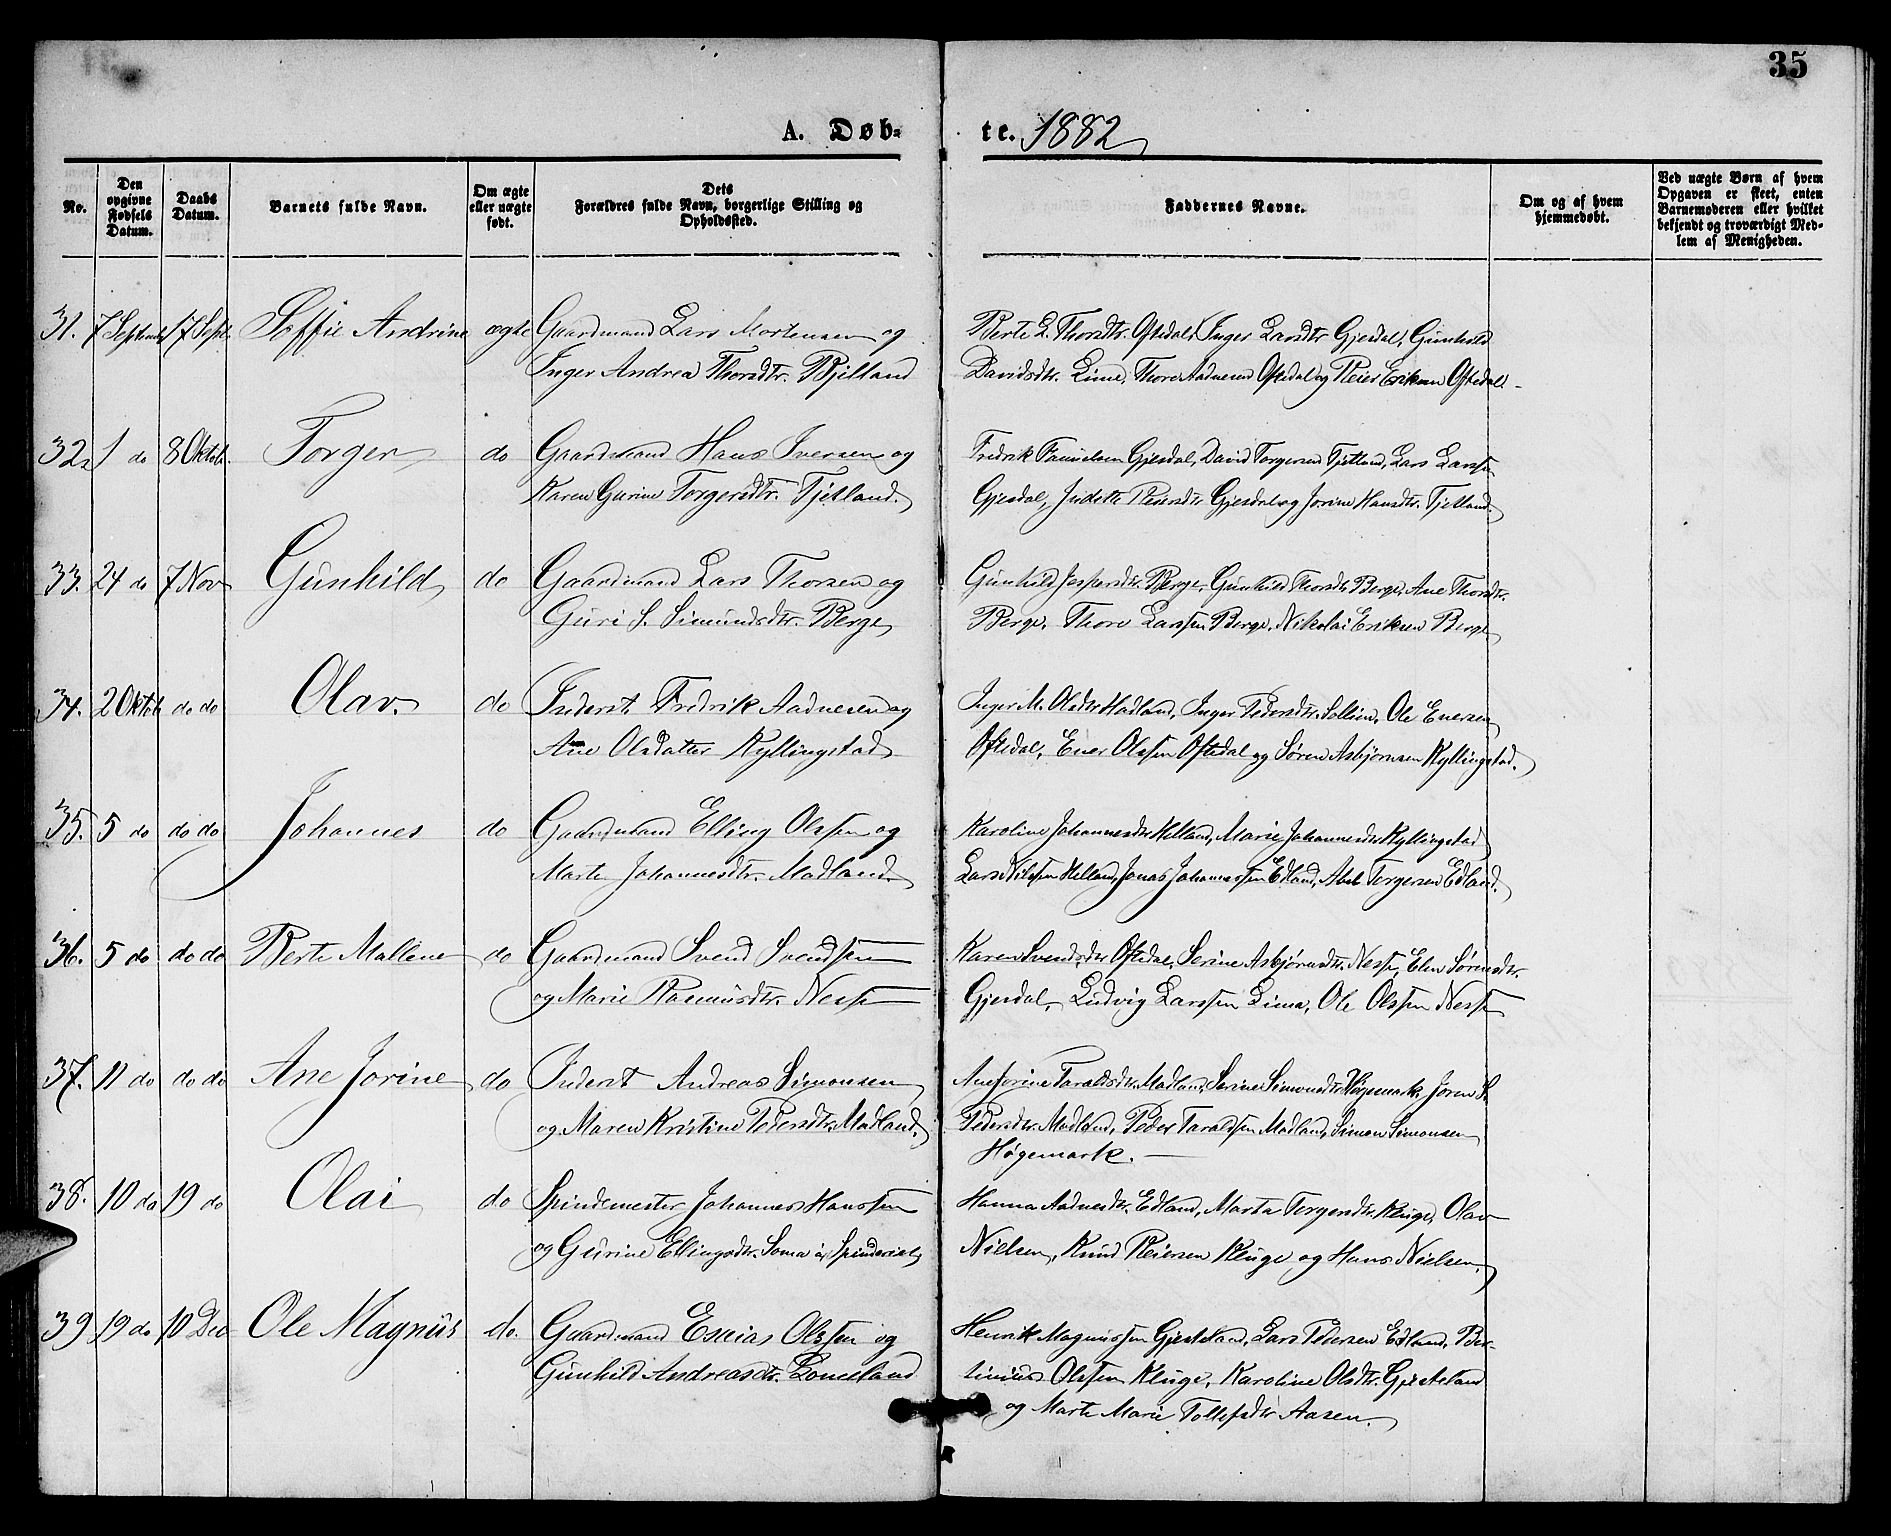 35
A. Døb-
te. 1882
No.
Den opgivne Fødsels Datum.
Daabs Datum.
Barnets fulde Navn.
Om ægte eller uægte født.
Dets Forældres fulde Navn, borgerlige Stilling og Opholdssted.
Faddernes Navne.
Om og af hvem hjemmedøbt.
Ved uægte Børn af hvem Opgaven er skeet, enten Barnemoderen eller hvilket bekjendt og troværdigt Medlem af Menigheden.
31. 7 Septemb 17 Sept. Soffie Andrine ægte Gaardmand Lars Mortensen og
Inger Andrea Thorsdtr. Bjelland
Berte L. Thorsdtr. Oftedal, Inger Larsdtr Gjesdal, Gunhild
Davidsdtr. Lime, Thore Aadnesen Oftedal og Reier Eriksen Oftedal
32. 1 do 8 Oktob. Torger do Gaardmand Hans Iversen og
Karen Gurine Torgersdtr. Tjetland.
Fredrik Gjesdal, David Torgersen Tjetland, Lars Larssen
Gjesdal, Judith Reiersdtr Gjesdal og Jorine Hansdtr. Tjetland.
33. 24 do 7 Nov Gunhild do Gaardmand Lars Thorsen og
Guri S. Simundsdtr. Berge
Gunhild Jespersdtr. Berge, Gunhild Thorsdtr Berge, Ane Thorsdtr.
Berge, Thore Larssen Berge, Nikolai Eriksen Berge
34. 2 Oktob do do Olav. do Inderst Fredrik Aadnesen og
Ane Olsdatter Kyllingstad
Inger M. Olsdtr Madland, Inger Pedersdtr. Solliim, Ole Enersen
Oftedal, Ener Olssen Oftedal og Søren Asbjørnsen Kyllingstad.
35. 5 do do do Johannes do Gaardmand Elling Olssen og
Marte Johannesdtr. Madland.
Karoline Johannesdtr Helland, Marie Johannesdtr Kyllingstad
Lars Nilssen Helland, Jonas Johannessen Edland, Abel Torgersen Edland.
36. 5 do do do Berte Mallene do Gaardmand Svend Svendsen
og Marie Rasmusdtr. Nesse
Karen Svendsdtr Oftedal, Serine Asbjørnsdtr. Nesse, Elen Sørensdtr.
Gjesdal, Ludvig Larssen Lima, Ole Olssen Nesse
37. 11 do do do Ane Jorine do Inderst Andreas Simonsen
og Maren Kristine Pedersdtr. Madland.
Ane Jorine Taraldsdtr. Madland, Serine Simonsdtr Høgemark, Joren S.
Pedersdtr. Madland, Peder Taraldsen Madland, Simon Simonsen
Høgemark.
38. 10 do 19 do Olai do Spindemester Johannes Hanssen
og Gurine Ellingsdtr. Soma
Hanna Aadnesdtr. Edland, Marta Torgersdtr. Kluge, Olav
Nielsen, Knud Reiersen Kluge og Hans Nielsen.
39 19 do 10 Dec Ole Magnus do. Gaardmand Esaias Olssen og
Gunhild Andreasdtr. Lomeland
Henrik Magnussen Gjesteland, Lars Pedersen Edland, Ber-
tinius Olssen Kluge, Karoline Olsdtr. Gjesteland
og Marte Marie Tollefsdtr Aasen.